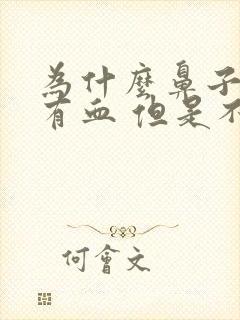 為什麼鼻子
有血 但是不
何會文